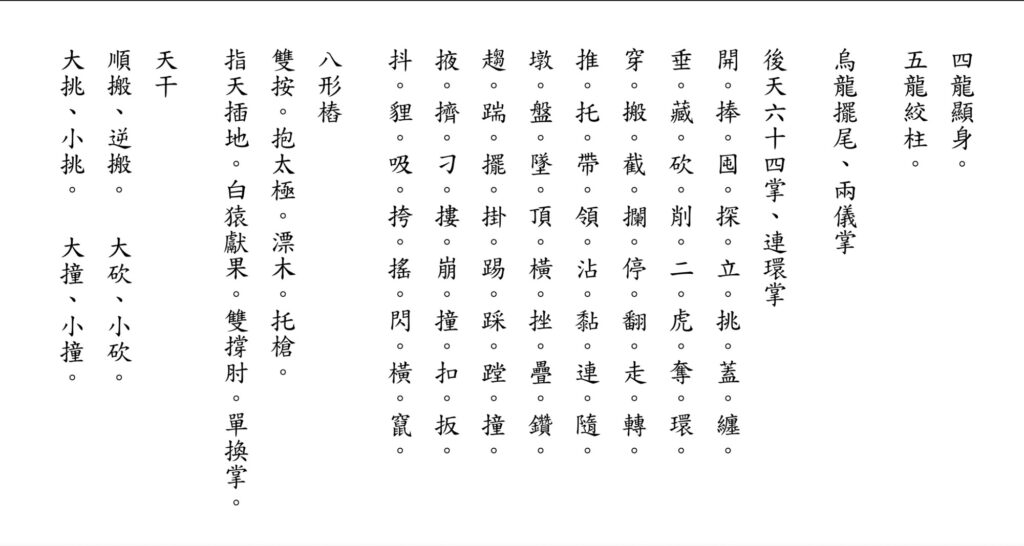 四龍顯身。
五龍絞柱。
烏龍擺尾、兩儀掌
後天六十四掌、連環掌
開。捧。囤。探。立。挑。蓋。纏。
垂。藏。砍。削。二。虎。奪。環。
穿。搬。截。攔。停。翻。走。轉。
推。托。帶。領。沾。黏。連。隨。
墩。盤。墜。頂。橫。挫。疊。鑽。
趨。踹。擺。掛。踢。踩。蹚。撞。
掖。擠。刁。摟。崩。撞。扣。扳。
抖。貍。吸。挎。搖。閃。橫。竄。
八形樁
雙按。抱太極。漂木。托槍。
指天插地。白猿獻果。雙撐肘。單換掌。
天干
順搬、逆搬。 大砍、小砍。
大挑、小挑。 大撞、小撞。